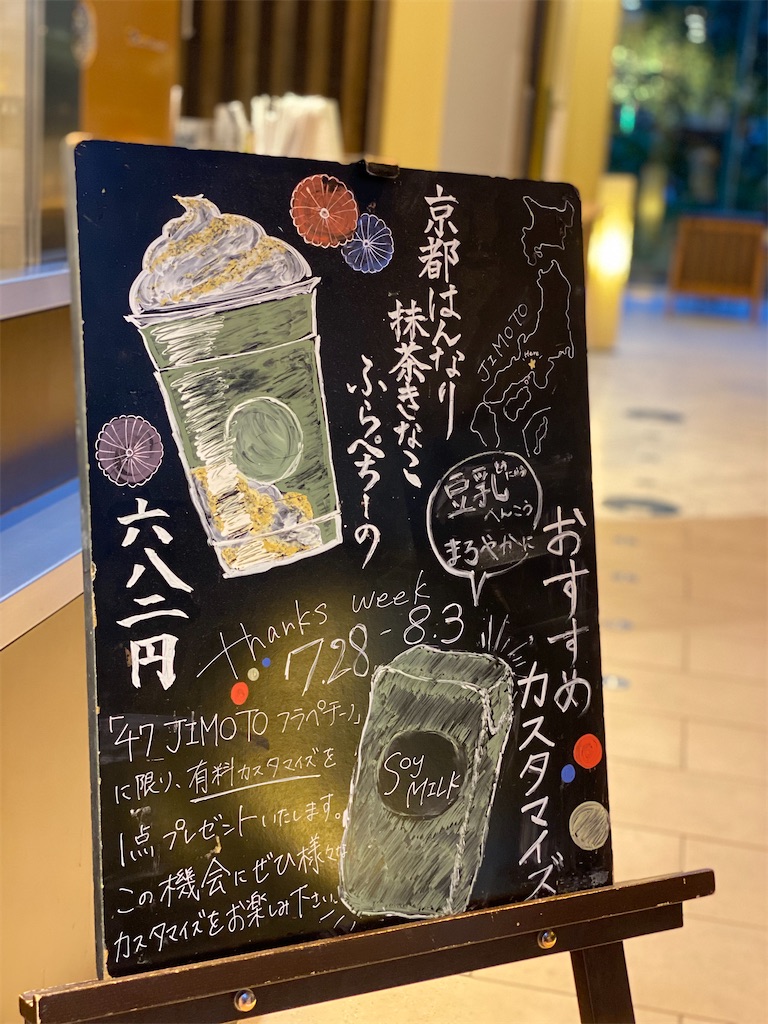 京都はんなり
抹茶きなこ
ふらぺちーの
六八二円
JIMOTO
Here
豆乳に
へんこう
まろやかに
おすすめ
カスタマイズ
thanks week
7.28-8.3
「47 JIMOTO フラペチーノ」
に限り、有料カスタマイズを
1点プレゼントいたします。
この機会にぜひ様々な
カスタマイズをお楽しみ下さい。
Soy
MILK